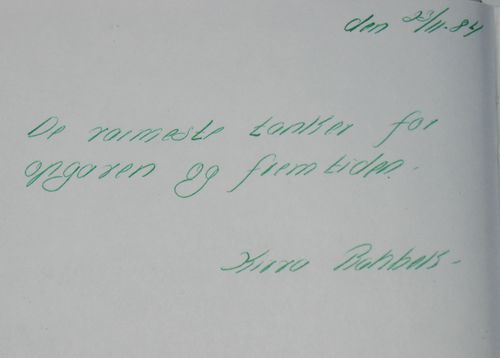 den 23/11-84
De varmeste tanker for
opgaven og fremtiden.
Kirro Bahbek.